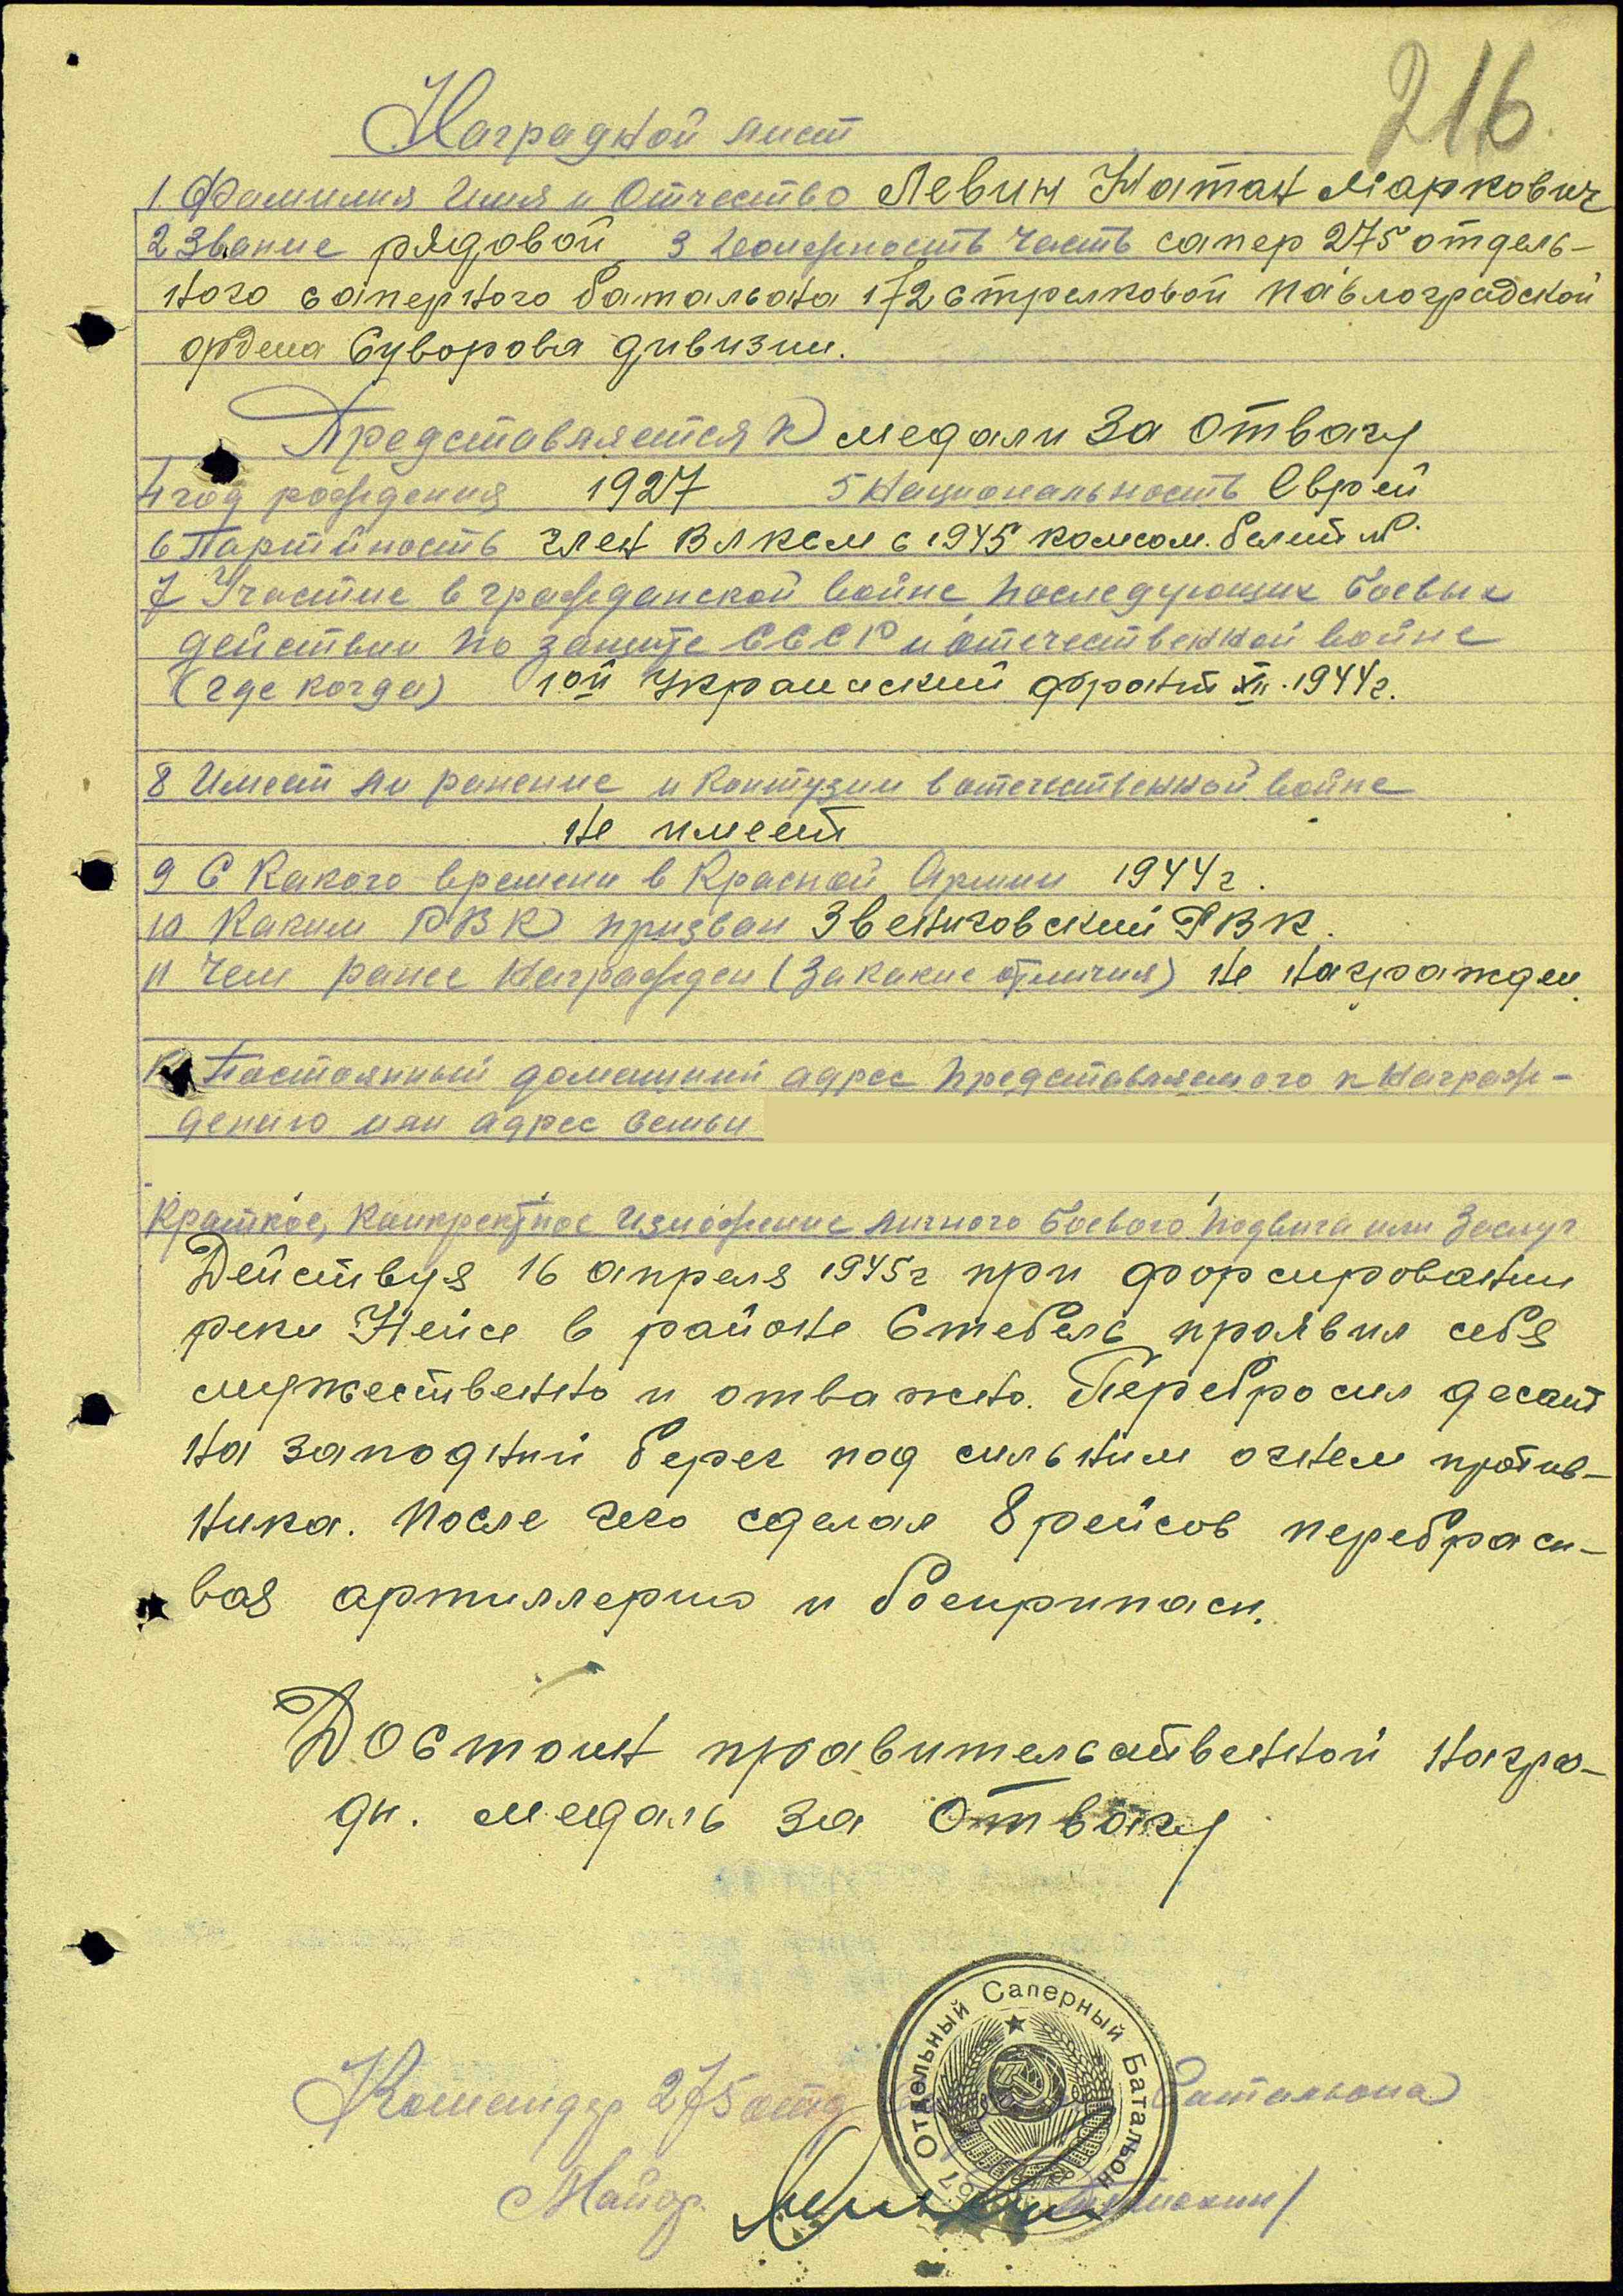 216
Наградной лист
1 Фамилия Имя и Отчество Левин Натан Маркович
2 Звание рядовой 3 Должность часть сапер 275 отдель-
ного саперного батальона 172 стрелковой Павлоградской
ордена Суворова дивизии.
Представляется к медали За Отвагу
4 год рождения 1927 5 Национальность Еврей
6 Партийность член ВЛКСМ с 1945 комсом. билет №
7 Участие в гражданской войне последующих боевых
действии по защите СССР и отечественной войне
(где когда) 1ой Украинский фронт XII. 1944г.
8 Имеет ли ранение и контузии в отечественной войне
не имеет
9 С какого времени в Красной Армии 1944г.
10 Каким РВК призван Звениговский РВК.
11 Чем ранее награжден (За какие отличия) не награжден.
Постоянный домашний адрес представляемого к награж-
дению или адрес семьи
Краткое, конкретное изложение личного боевого подвига или заслуг
Действуя 16 апреля 1945г при форсировании
реки Нейсе в районе Стебель проявил себя
мужественно и отважно. Перебросил десант
на заподний берег под сильним огнем против-
ника. После чего сделал 8 рейсов перебраси-
вая артиллерию и боеприпаси.
Достоин правительственной награ-
ди. медаль за Отвагу
Командир 275 отд батальона
Отдельный Саперный Батальон
Майор